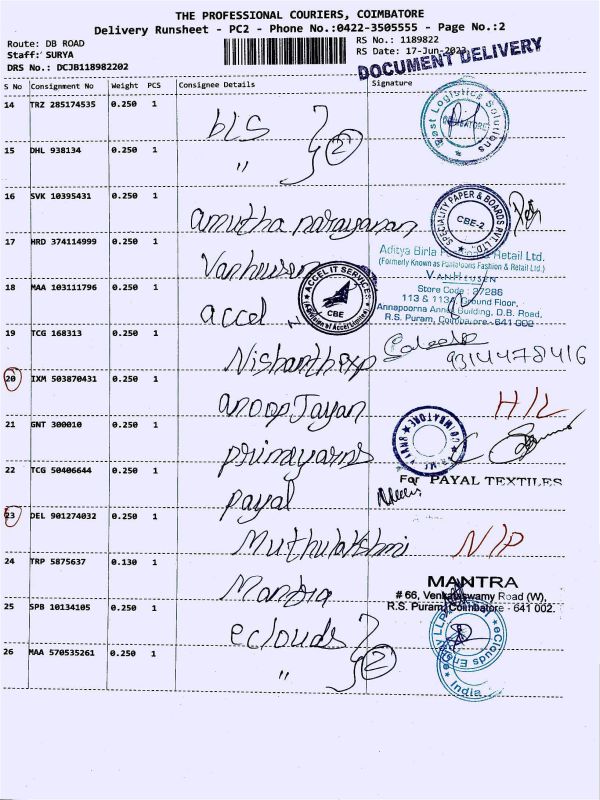 THE PROFESSIONAL COURIERS, COIMBATORE
Delivery Runsheet - PC2 - Phone No.:0422-3505555 - Page No.:2
Route: DB ROAD
RS No.: 1189822
Staff: SURYA
RS Date: 17-Jun-2023
DRS No.: DCJB118982202
DOCUMENT DELIVERY
S No Consignment No Weight PCS Consignee Details Signature
14 TRZ 285174535 0.250 1 bLS
Best Logistics Solutions
COIMBATORE
15 DHL 938134 0.250 1 " 2
16 SVK 10395431 0.250 1 amutha narayanan
SPECIALITY PAPER & BOARDS PVT. LTD.
CBE-2
17 HRD 374114999 0.250 1 Vanheusen
Aditya Birla Fashion & Retail Ltd.
(Formerly Known as Pantaloons Fashion & Retail Ltd.)
VANHEUSEN
Store Code : 27286
113 & 113A, Ground Floor,
Annapoorna Annex Building, D.B. Road,
R.S. Puram, Coimbatore - 641 002
18 MAA 103111796 0.250 1 accel
ACCEL IT SERVICES
(A Division of Accel Limited)
CBE
19 TCG 168313 0.250 1 Nishanth exp
9314478416
20 IXM 503870431 0.250 1 anoop Jayan
H/L
21 GNT 300010 0.250 1 primayarns
COIMBATORE
22 TCG 50406644 0.250 1 payal
For PAYAL TEXTILES
23 DEL 901274032 0.250 1 Muthulakshmi
N/P
24 TRP 5875637 0.130 1 Mantra
MANTRA
# 66, Venkataswamy Road (W),
R.S. Puram, Coimbatore - 641 002.
25 SPB 10134105 0.250 1 eclouds
eClouds Energy LLP
India
26 MAA 570535261 0.250 1 " 2